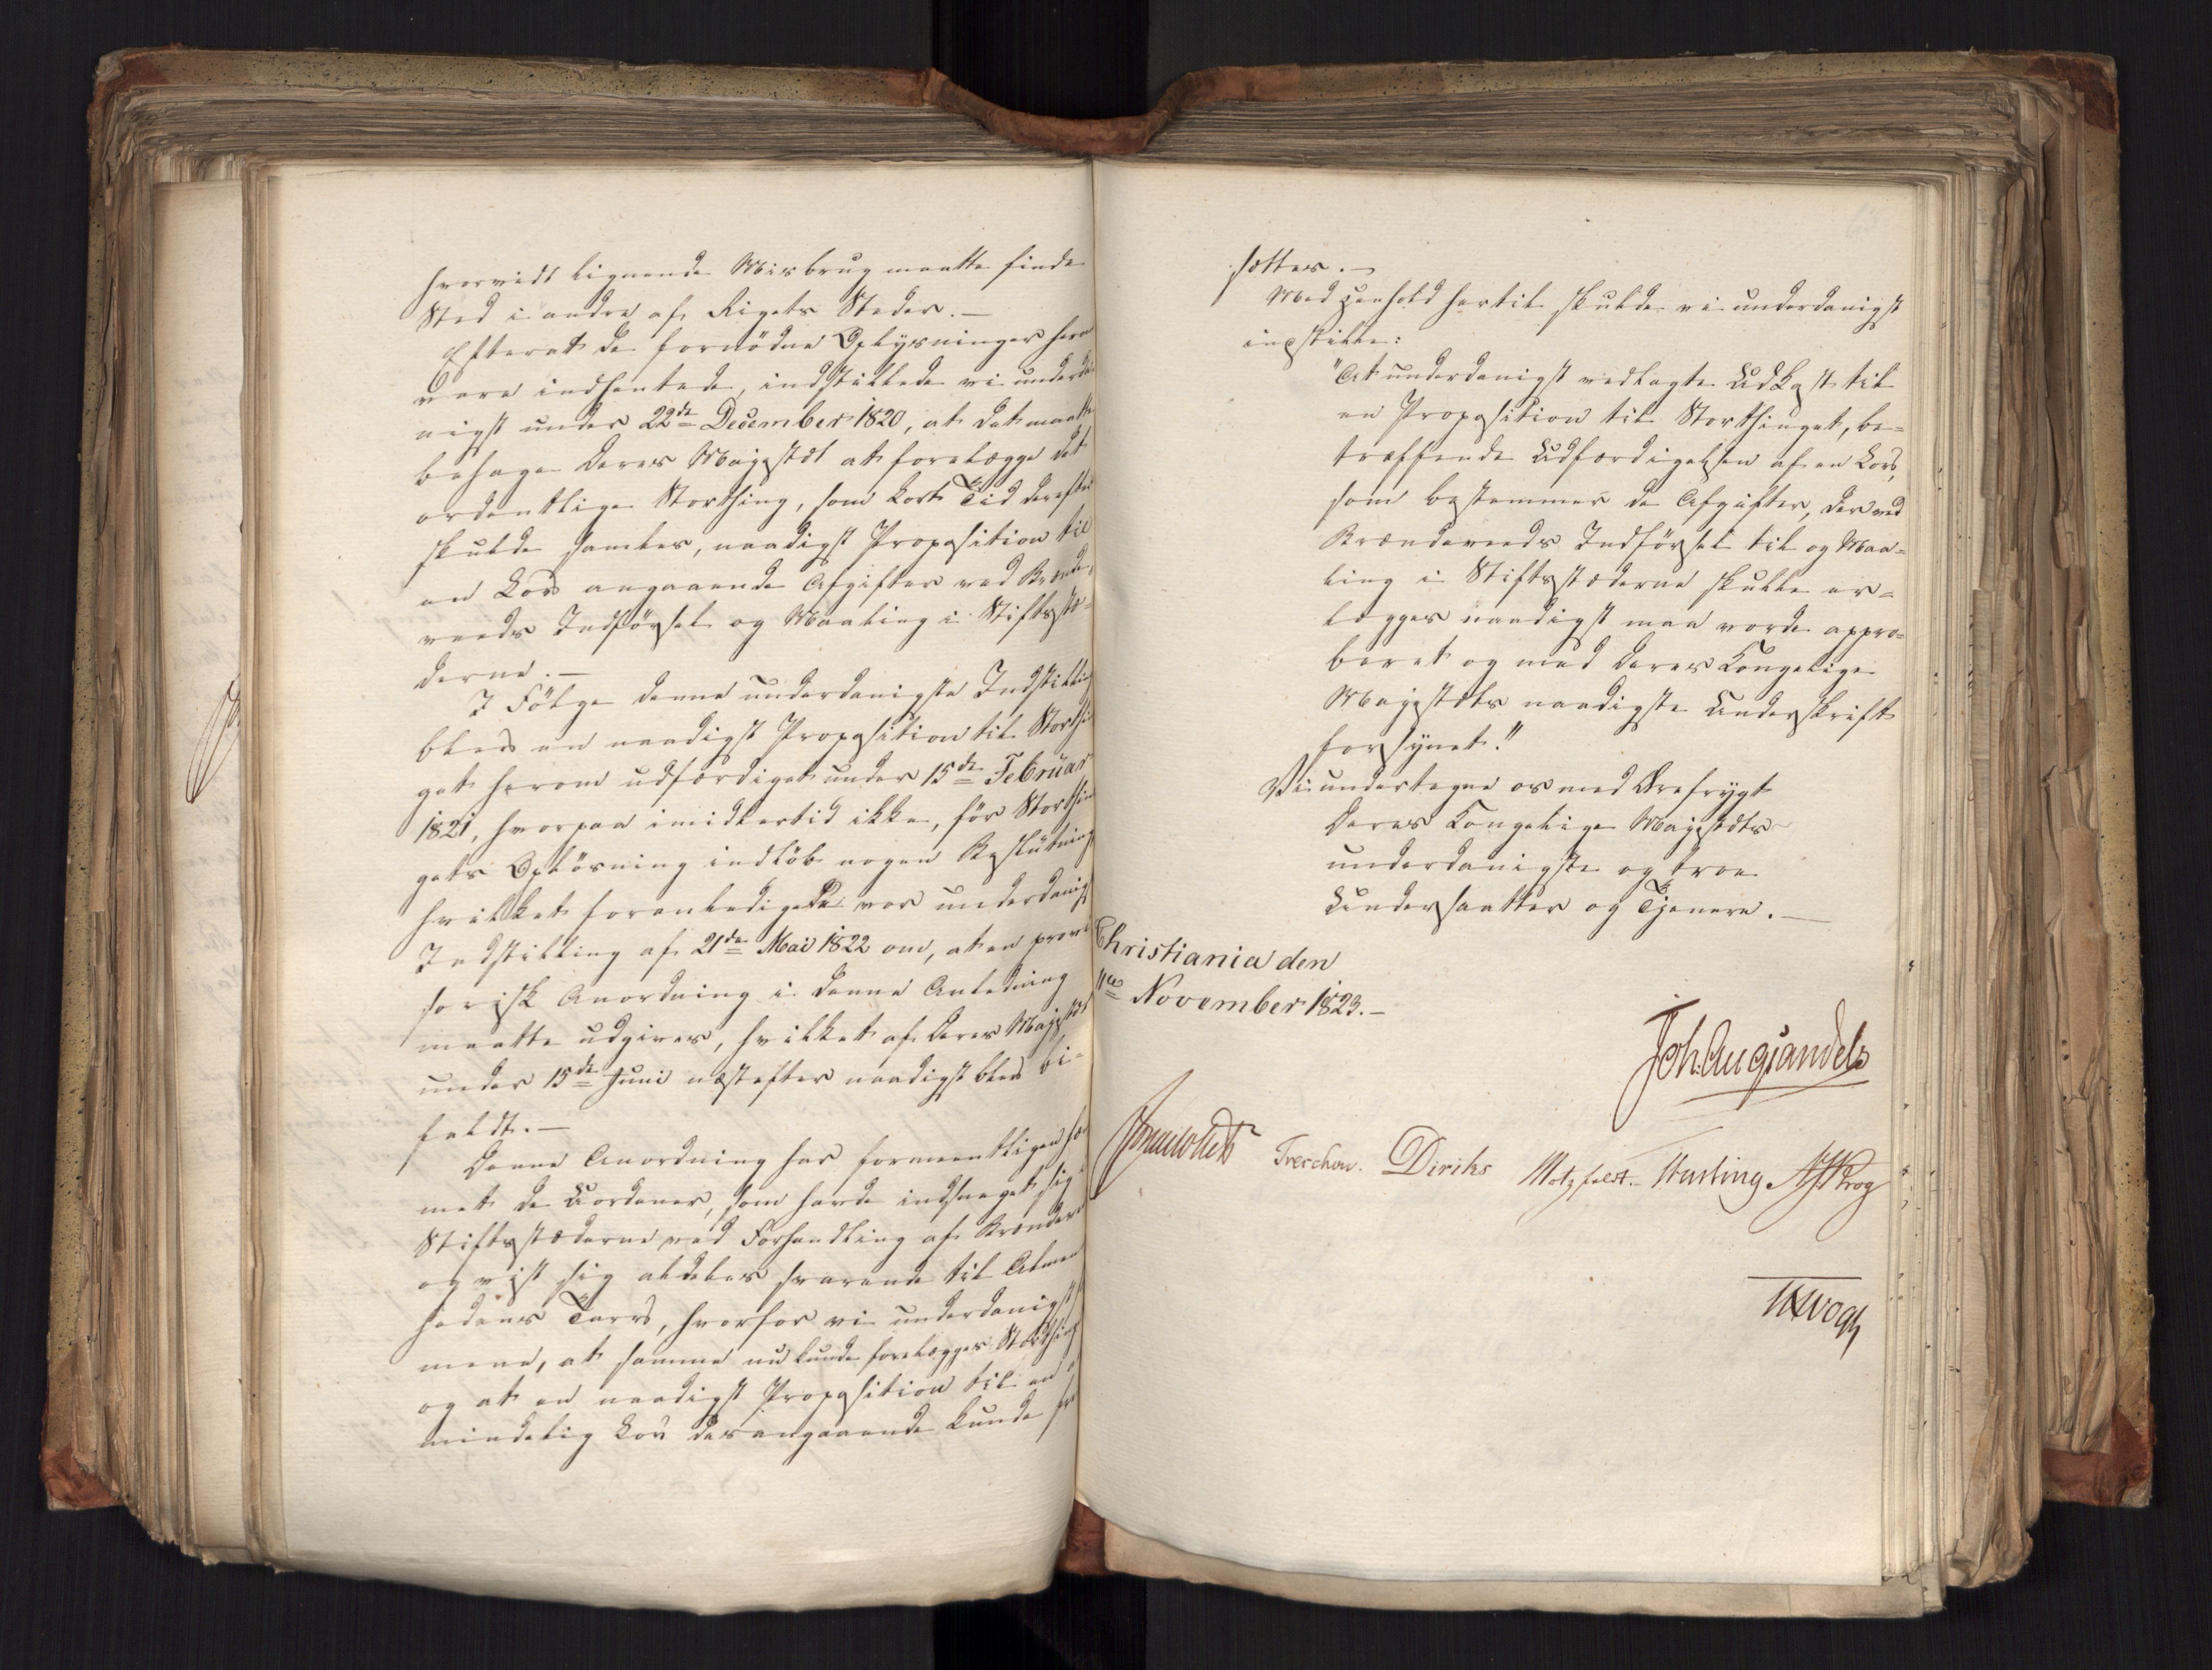 hvorvidt lignende Misbrug maatte finde
Sted i andre af Rigets Stæder. —
Efterat de fornødne Oplysninger herom
vare indhentede, indstillede vi underda-
nigst under 22de December 1820, at det maatte
behage Deres Majestæt at forelægge det
ordentlige Storthing, som kort Tid derefter
skulde samles, naadigst Proposition til
en Lov angaaende Afgifter ved Brænde-
veeds Indførsel og Maaling i Stiftsstæ-
derne. —
I Følge denne underdanigste Indstilling
blev en naadigst Proposition til Storthin-
get herom udfærdiget under 15de Februar
1821, hvorpaa imidlertid ikke, før Storthin-
gets Opløsning indløb nogen Beslutning,
hvilket foranledigede vor underdanigste
Indstilling af 21de Mai 1822 om, at en provi-
sorisk Anordning i denne Anledning
maatte udgives, hvilket af Deres Majestæt
under 15de Juni næstefter naadigst blev bi-
faldt. —
Denne Anordning har formeentligen hæm-
met de Uordener, som havde indsneget sig i
Stiftsstæderne ved Forhandling af Brændeveed
og vist sig aldeles svarende til Almeen-
hedens Tarv, hvorfor vi underdanigst
mene, at samme nu kunde forelægges Storthinget
og at en naadigst Proposition til en al-
mindelig Lov desangaaende kunde frem-
sættes. —
Med Henhold hertil skulde vi underdanigst
indstille:
"At underdanigst vedlagte Udkast til
en Proposition til Storthinget, be-
træffende Udfærdigelsen af en Lov,
som bestemmer de Afgifter, der ved
Brændeveeds Indførsel til og Maa-
ling i Stiftsstæderne skulle er-
lægges naadigst maa vorde appro-
beret og med Deres Kongelige
Majestæts naadigste Underskrift
forsynet."
Vi undertegne os med Ærefrygt
Deres Kongelige Majestæts
underdanigste og troe
Undersaatter og Tjenere. —
Christiania den
11te November 1823. —
Joh. Aug. Sandels
Sommerhielm Treschow. Diriks Motzfeldt. Hasting JHKrog
Vogt